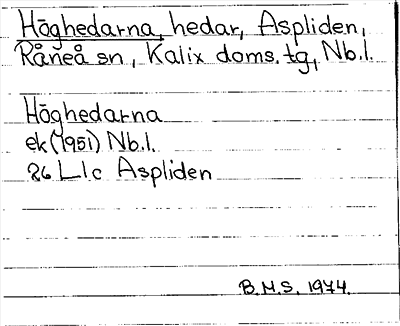 Höghedarna, hedar, Aspliden,
Råneå sn, Kalix doms. tg, Nb.l.
Höghedarna
ek (1951) Nb.l.
26 L1c Aspliden
B.M.S. 1974.